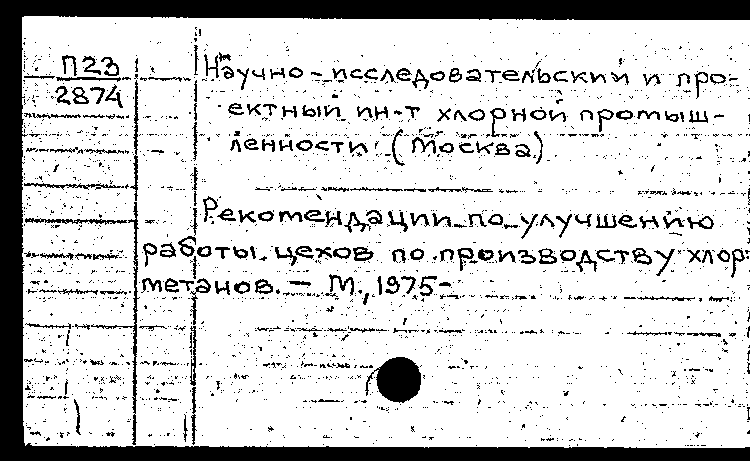 П23
2874
Научно-исследовательский и про-
ектный ин-т хлорной промыш-
ленности (Москва)
Рекомендации по улучшению
работы цехов по производству хлор-
метанов. — М., 1975-